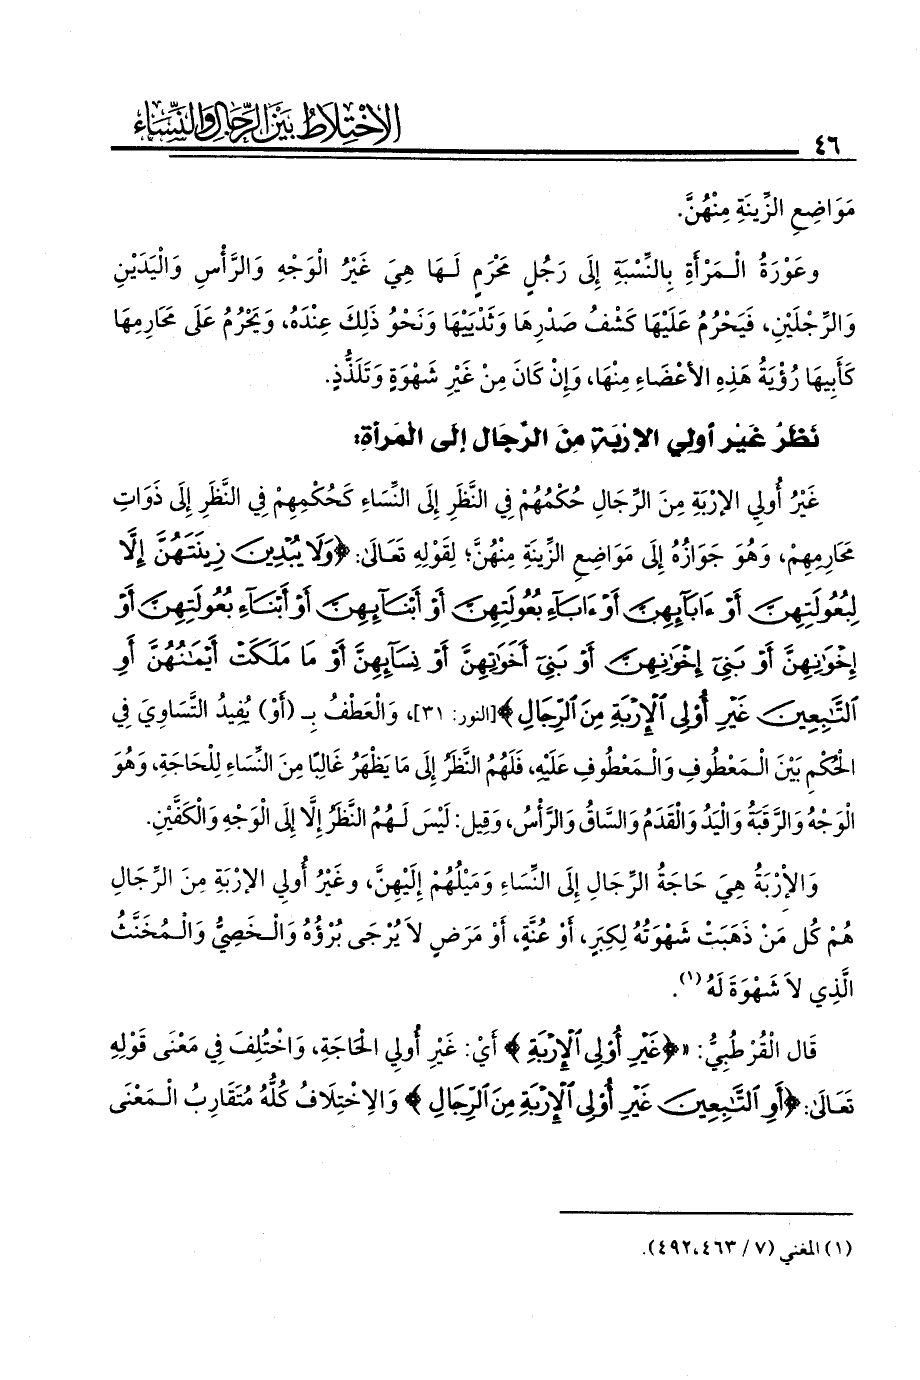 الاخْتِلَاطُ بَيْنَ الرِّجَالِ وَالنِّسَاءِ
٤٦
مَوَاضِعِ الزِّينَةِ مِنْهُنَّ.
وعَوْرَةُ الْـمَرْأَةِ بِالنِّسْبَةِ إِلَى رَجُلٍ مَحْرَمٍ لَـهَا هِيَ غَيْرُ الْوَجْهِ وَالرَّأْسِ وَالْيَدَيْنِ
وَالرِّجْلَيْنِ، فَيَحْرُمُ عَلَيْهَا كَشْفُ صَدْرِهَا وَثَدْيَيْهَا وَنَحْوُ ذَلِكَ عِنْدَهُ، وَيَحْرُمُ عَلَى مَحَارِمِهَا
كَأَبِيهَا رُؤْيَةُ هَذِهِ الأَعْضَاءِ مِنْهَا، وَإِنْ كَانَ مِنْ غَيْرِ شَهْوَةٍ وَتَلَذُّذٍ.
نَظَرُ غَيْرِ أولي الإرْبَةِ مِنَ الرِّجَالِ إلَى الْمَرأةِ:
غَيْرُ أُولِي الإرْبَةِ مِنَ الرِّجَالِ حُكْمُهُمْ فِي النَّظَرِ إِلَى النِّسَاءِ كَحُكْمِهِمْ فِي النَّظَرِ إِلَى ذَوَاتِ
مَحَارِمِهِمْ، وَهُوَ جَوَازُهُ إِلَى مَوَاضِعِ الزِّينَةِ مِنْهُنَّ؛ لِقَوْلِهِ تَعَالَىٰ: ﴿وَلَا يُبْدِينَ زِينَتَهُنَّ إِلَّا
لِبُعُولَتِهِنَّ أَوْ ءَابَآئِهِنَّ أَوْ ءَابَآءِ بُعُولَتِهِنَّ أَوْ أَبْنَآئِهِنَّ أَوْ أَبْنَآءِ بُعُولَتِهِنَّ أَوْ
إِخْوَٰنِهِنَّ أَوْ بَنِىٓ إِخْوَٰنِهِنَّ أَوْ بَنِىٓ أَخَوَٰتِهِنَّ أَوْ نِسَآئِهِنَّ أَوْ مَا مَلَكَتْ أَيْمَٰنُهُنَّ أَوِ
ٱلتَّٰبِعِينَ غَيْرِ أُوْلِى ٱلْإِرْبَةِ مِنَ ٱلرِّجَالِ﴾[النور: ٣١]، وَالْعَطْفُ بِـ (أَوْ) يُفِيدُ التَّسَاوِيَ فِي
الْحُكْمِ بَيْنَ الْـمَعْطُوفِ وَالْـمَعْطُوفِ عَلَيْهِ، فَلَهُمُ النَّظَرُ إِلَى مَا يَظْهَرُ غَالِبًا مِنَ النِّسَاءِ لِلْحَاجَةِ، وَهُوَ
الْوَجْهُ وَالرَّقَبَةُ وَالْيَدُ وَالْقَدَمُ وَالسَّاقُ وَالرَّأْسُ، وَقِيل: لَيْسَ لَـهُمُ النَّظَرُ إِلَّا إِلَى الْوَجْهِ وَالْكَفَّيْنِ.
وَالإِرْبَةُ هِيَ حَاجَةُ الرِّجَالِ إِلَى النِّسَاءِ وَمَيْلُهُمْ إِلَيْهِنَّ، وغَيْرُ أُولِي الإرْبَةِ مِنَ الرِّجَالِ
هُمْ كُل مَنْ ذَهَبَتْ شَهْوَتُهُ لِكِبَرٍ، أَوْ عُنَّةٍ، أَوْ مَرَضٍ لاَ يُرْجَى بُرْؤُهُ وَالْـخَصِيُّ وَالْـمُخَنَّثُ
الَّذِي لاَ شَهْوَةَ لَهُ (١).
قَال الْقُرْطُبِيُّ: «﴿غَيْرِ أُوْلِى ٱلْإِرْبَةِ﴾ أَيْ: غَيْرِ أُولِي الْحَاجَةِ، وَاخْتُلِفَ فِي مَعْنَى قَوْلِهِ
تَعَالَىٰ: ﴿أَوِ ٱلتَّٰبِعِينَ غَيْرِ أُوْلِى ٱلْإِرْبَةِ مِنَ ٱلرِّجَالِ﴾ وَالِاخْتِلَافُ كُلُّهُ مُتَقَارِبُ الْـمَعْنَى
(١) المغني (٧ / ٤٦٣، ٤٩٢).